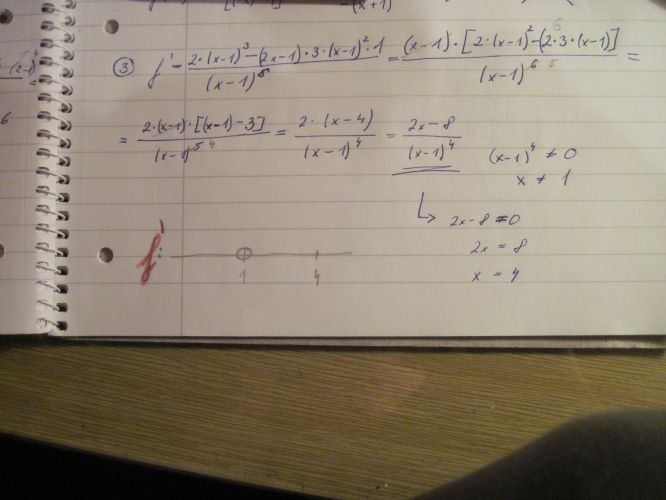 -(x+1)
③ f' = 2·(x-1)³-(2x-1)·3·(x-1)²·1 / (x-1)⁶ = (x-1)·[2·(x-1)²-(2·3·(x-1)] / (x-1)⁶ ⁵ =
= 2·(x-1)·[(x-1)-3] / (x-1)⁵ ⁴ = 2·(x-4) / (x-1)⁴ = 2x-8 / (x-1)⁴
(x-1)⁴ ≠ 0
x ≠ 1
↳ 2x-8=0
2x = 8
x = 4
f':
1 4